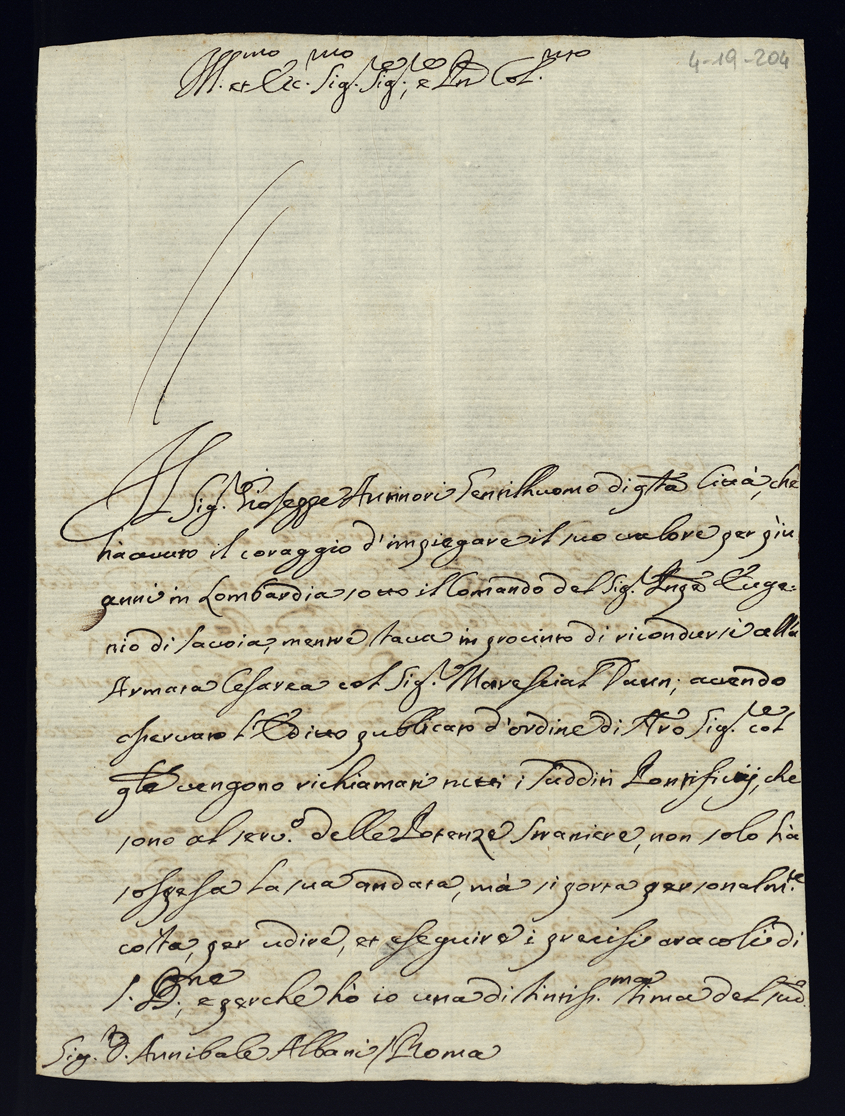 Ill.mo et Ecc.mo Sig.re Sig.re, e Pnē Col.mo
4-19-204
Il Sig.r Gioseppe Aunnori Gentilhuomo di q̄sta Città, che
hà avuto il coraggio d'impiegare il suo valore per più
anni in Lombardia sotto il Comando del Sig.r Pnpe Euge-
nio di Savoia, mentre stava in procinto di ricondursi alla
Armata Cesarea col Sig.r Marescial Daun; avendo
osservato l'Editto publicato d'ordine di Nr̄o Sig.re col
q̄le vengono richiamati tutti i Sudditi Pontificij, che
sono al serv.o delle Potenze Straniere, non solo hà
sospesa la sua andata, mà si porta personalm.te
costà, per udire, et eseguire i precisi oracoli di
S. B.ne; e perche hò io una distintiss.ma stima del sud.o
Sig.r D. Annibale Albani / Roma